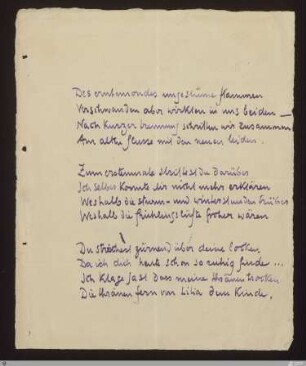 Des erntemondes ungestüme flammen
Verschwanden aber wirkten in uns beiden —
Nach kurzer trennung schritten wir zusammen
Am alten flusse mit den neuen leiden.
Zum erstenmale stritest du darüber
Ich selber konnte dir nicht mehr erklären
Weshalb die sturm- und winterstunden trüber
Weshalb die frühlingslüfte froher wären
Du strichest zürnend über deine locken
Da ich dich heute schon so ruhig finde ...
Ich klage fast dass meine thränen trocken
Die thränen fern von Lilia dem kinde.